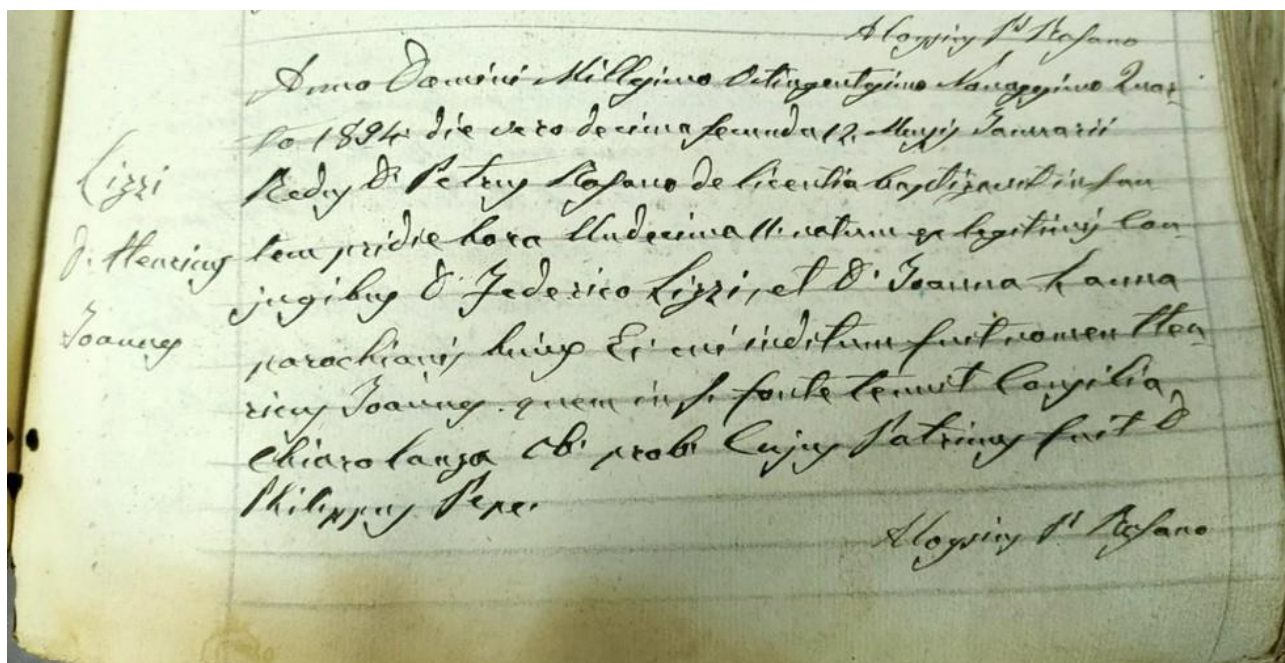 Aloysius Pr Rafano
Anno Domini Millesimo Octingentesimo Nonagesimo Quar
to 1894 die vero decima secunda 12. Mensis Januarii
Lizzi
Redus D. Petrus Rafano de licentia baptizavit infan
D. Henricus
tem pridie hora Undecima 11. natum ex legitimis Con
jugibus D. Federico Lizzi, et D. Joanna Lanna
Joannes
parochianis hujus Ei cui inditum fuit nomen Hen
ricus Joannes. quem in s. fonte tenuit Consilia
Chiarolanza Ob. prob. Cujus Patrinus fuit D
Philippus Pepe.
Aloysius Pr Rafano